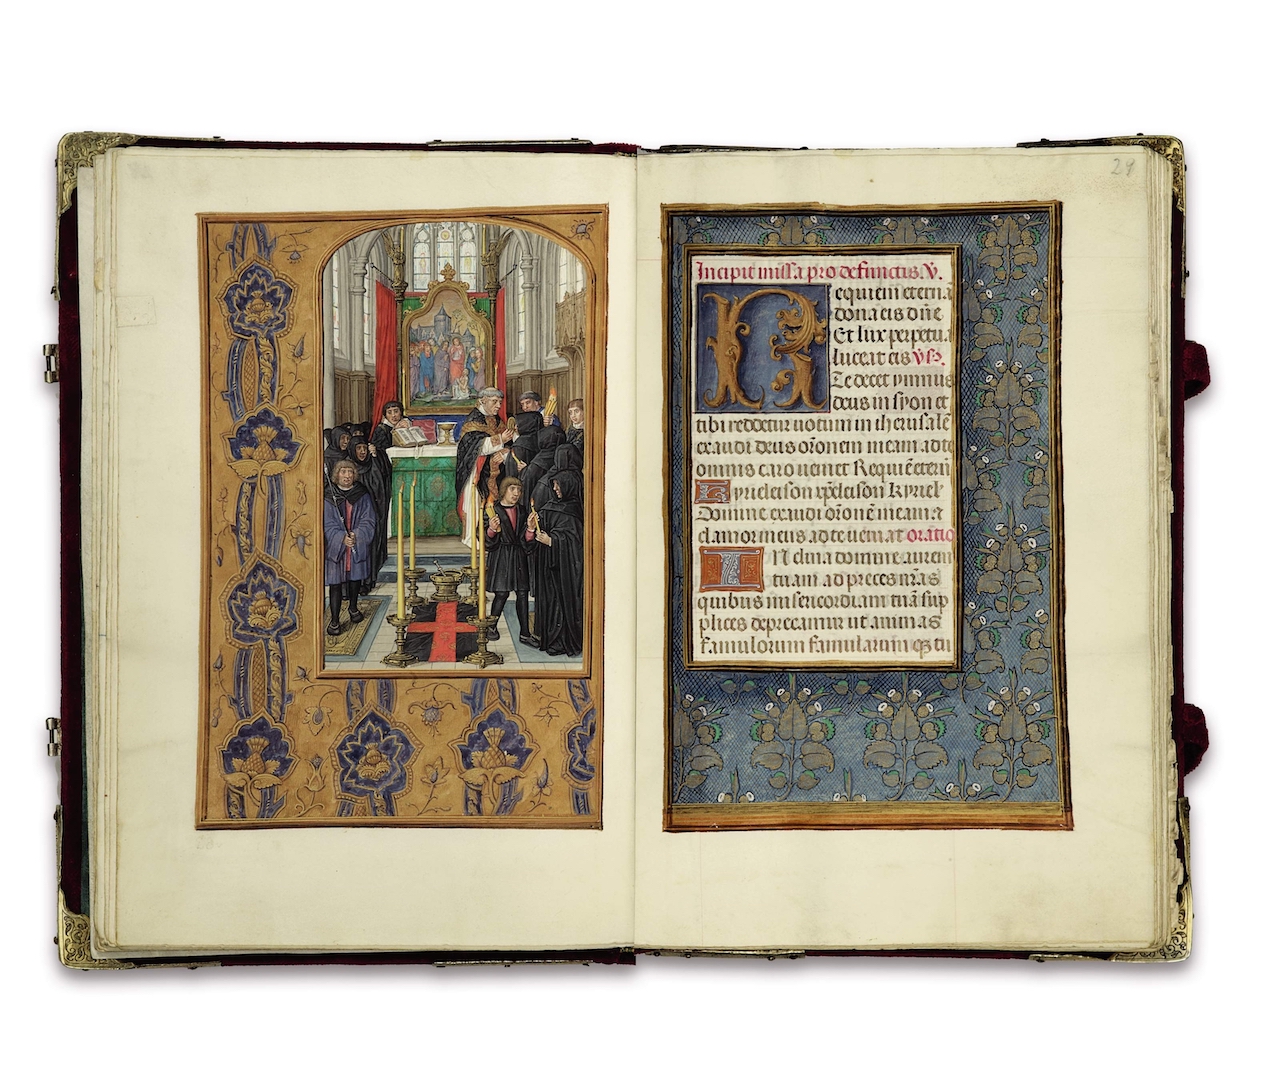 29
Incipit missa pro defunctis. V.
Requiem eterna
dona eis dn̄e
Et lux perpetua
luceat eis V℟.
Te decet ymnus
deus in syon et
tibi reddetur uotum in iherusalē
exaudi deus or̄onem meam ad te
omnis caro ueniet Requiē etern̄
Kyrieleison xp̄eleison Kyriel̄
Domine exaudi or̄onē meam a
clamor meus ad te ueniat oratio
Inclina domine aurem
tuam ad preces nr̄as
quibus misericordiam tuā sup
plices deprecamur ut animas
famulorum famularum qȝ tu